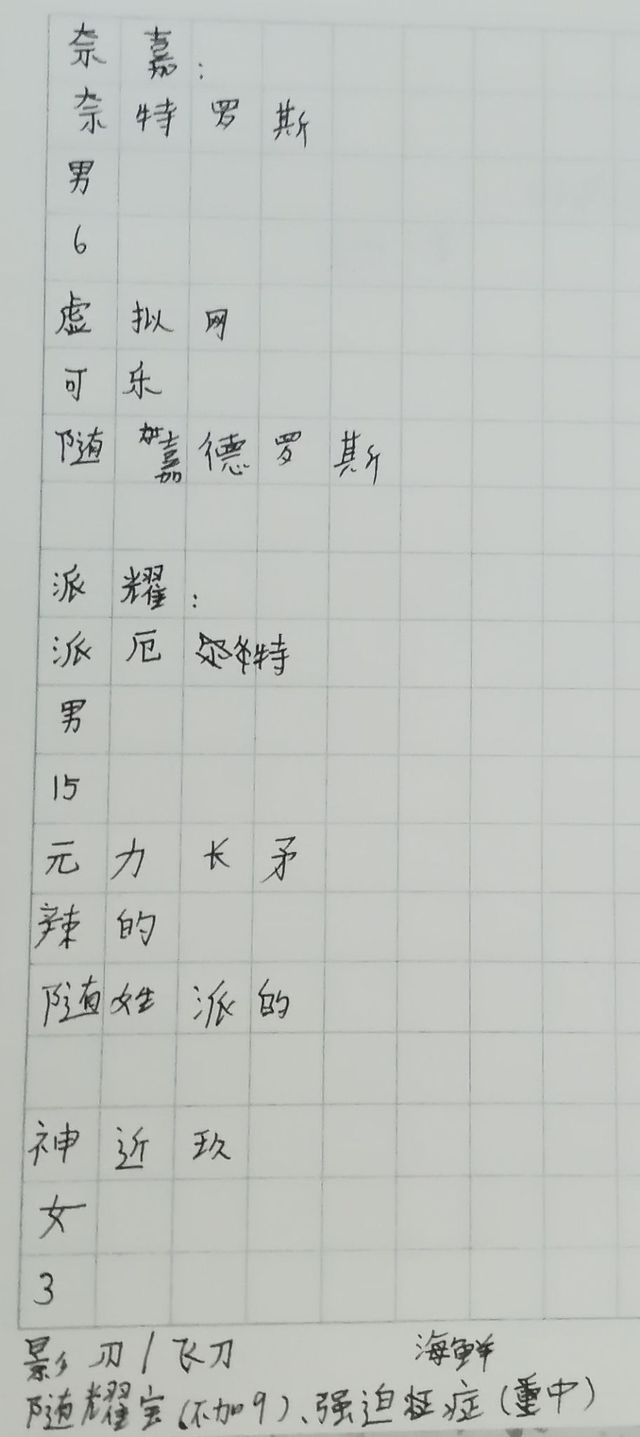 奈嘉：
奈特罗斯
男
6
虚拟网
可乐
随嘉德罗斯
派耀：
派厄特
男
15
元力长矛
辣的
随姓派的
神近玖
女
3
影刃/飞刀 海鲜
随耀宝(不加9)、强迫症(重中)